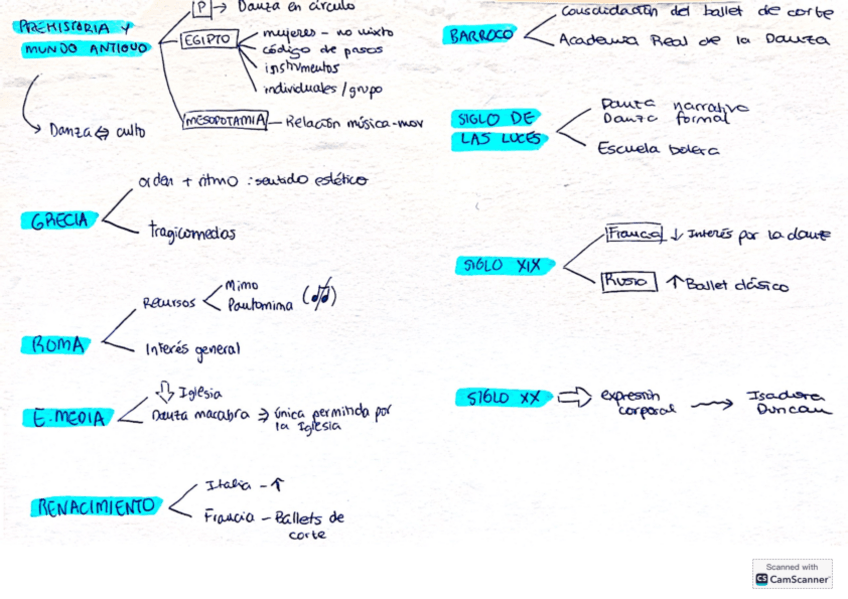 P → Danza en círculo
PREHISTORIA Y
MUNDO ANTIGUO
EGIPTO
mujeres - no mixto
código de pasos
instrumentos
individuales / grupo
MESOPOTAMIA - Relación música-mov
Danza ⇔ culto
GRECIA
orden + ritmo : sentido estético
tragicomedias
ROMA
Recursos
Mimo
Pantomima
Interés general
E. MEDIA
⇩ Iglesia
Danza macabra ⇒ única permitida por
la Iglesia
RENACIMIENTO
Italia - ↑
Francia - Ballets de
corte
BARROCO
Consolidación del ballet de corte
Academia Real de la Danza
SIGLO DE
LAS LUCES
Danza narrativa
Danza formal
Escuela bolera
SIGLO XIX
Francia ↓ Interés por la danza
Rusia ↑ Ballet clásico
SIGLO XX ⇒ expresión
corporal → Isadora
Duncan
Scanned with
CS CamScanner